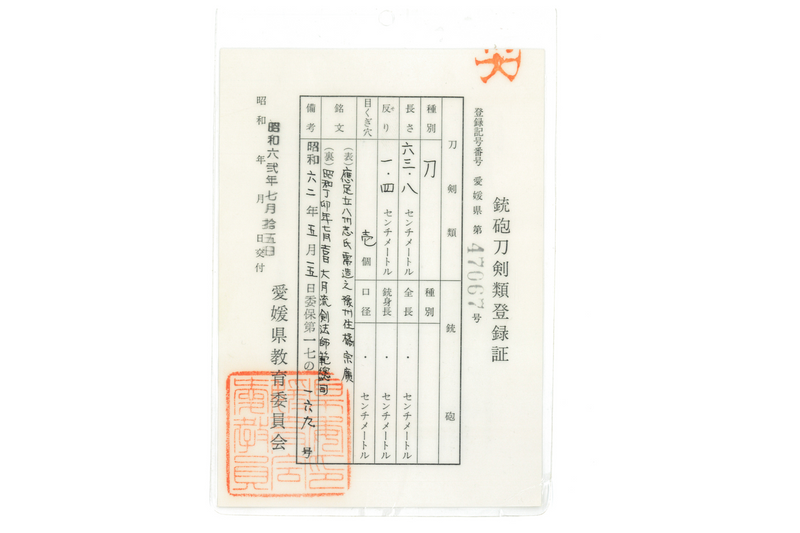 銃砲刀剣類登録証
登録記号番号 愛媛県 第 47067 号
刀剣類 銃砲
種別 刀 種別
長さ 六三・八 センチメートル 全長 ・ センチメートル
反り 一・四 センチメートル 銃身長 ・ センチメートル
目くぎ穴 壱 個 口径 ・ センチメートル
銘文 (表) 應足立八州志氏需造之豫州住橘宗廣
(裏) 昭和丁卯年七月吉日大月流剣法師範總司
備考 昭和六二年五月一五日委保第一七の一六九号
昭和 年 月 日交付
昭和六弐年七月拾五日
愛媛県教育委員会